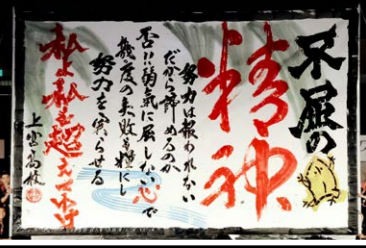 不屈の
精神
努力は報われない
だから諦めるのか
否!!弱氣に屈しない心で
幾度の失敗も糧にし
努力を実らせる
私よ私を超えてゆけ
上宮高校